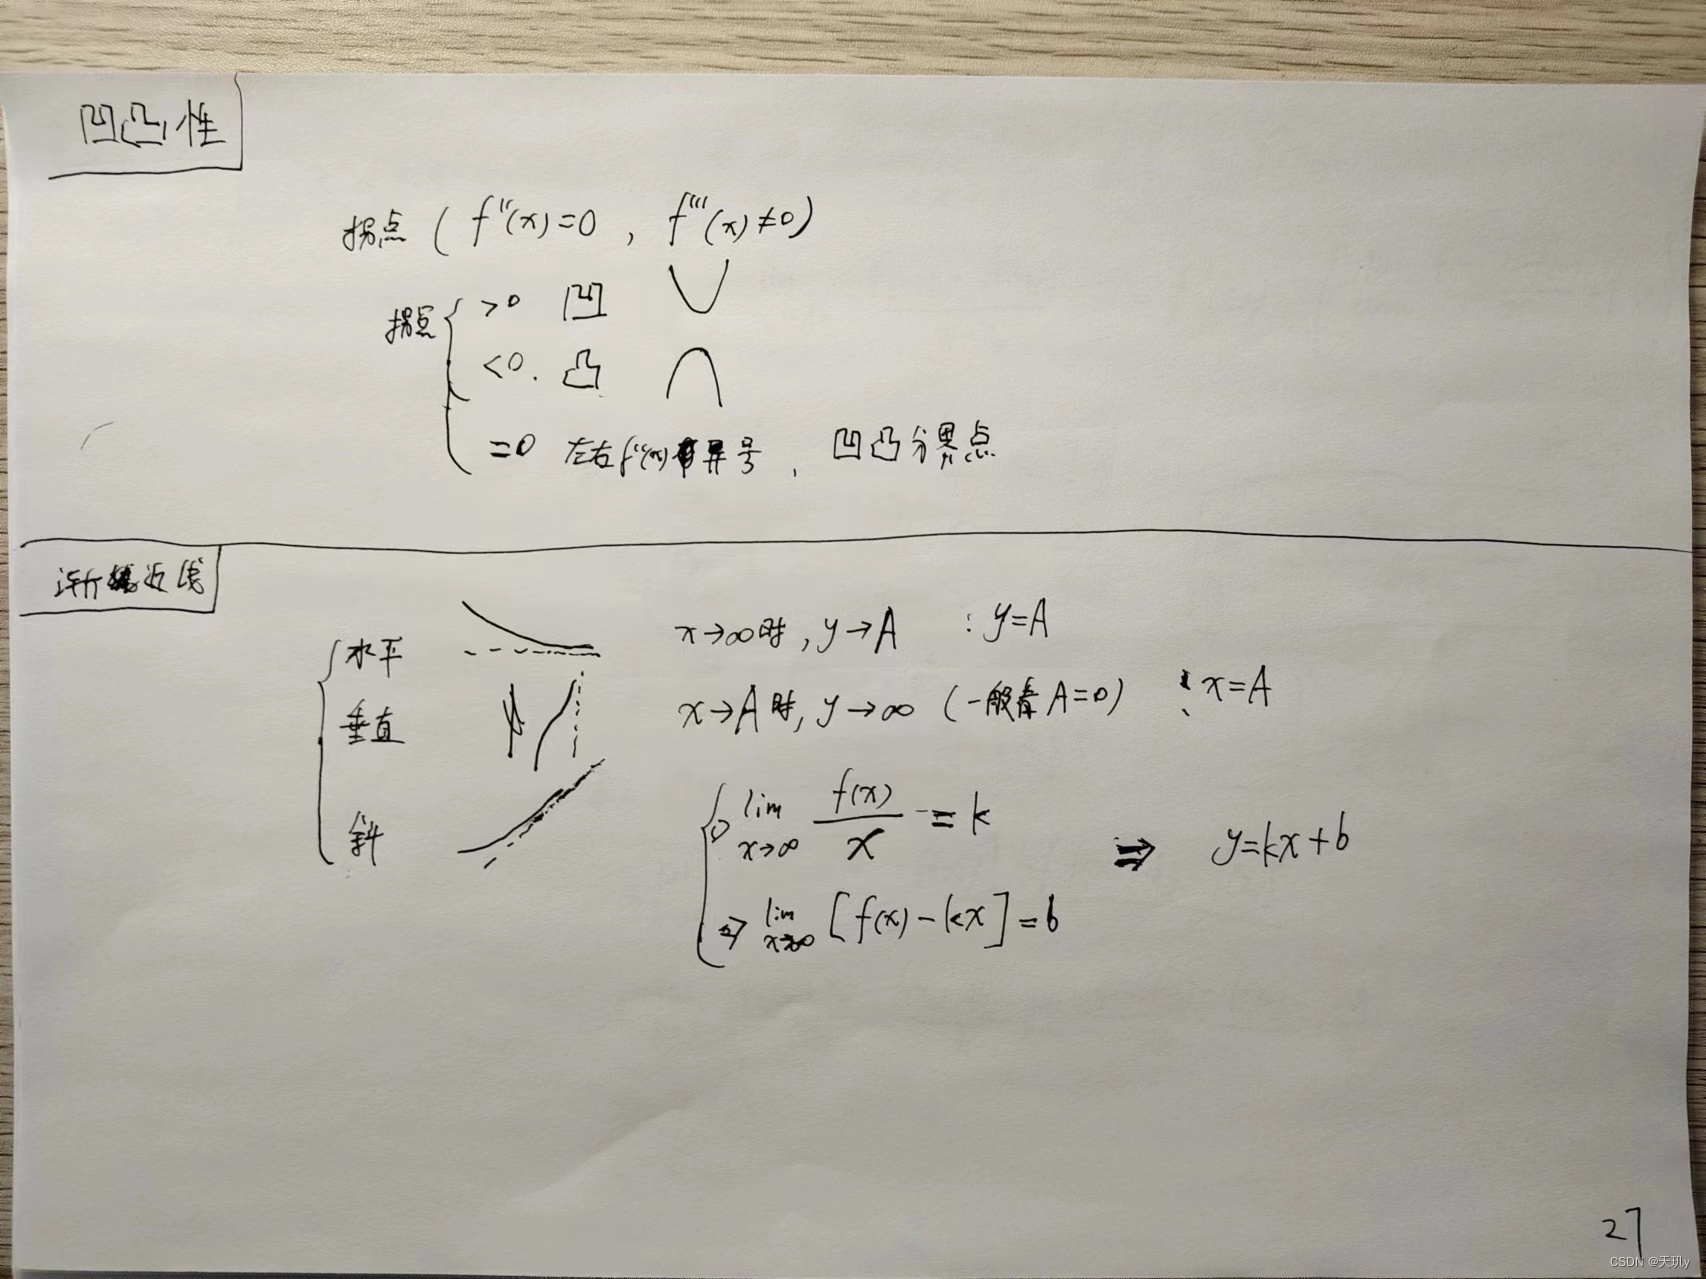 凹凸性
拐点 ( f''(x)=0 , f'''(x)≠0)
拐点 { >0 凹
<0. 凸
=0 左右f''(x)异号, 凹凸分界点
渐近线
水平 x→∞时, y→A : y=A
垂直 x→A时, y→∞ (一般看A=0) : x=A
斜 lim x→∞ f(x)/x = k ⇒ y=kx+b
⇒ lim x→∞ [f(x)-kx]=b
27
CSDN @天玑y